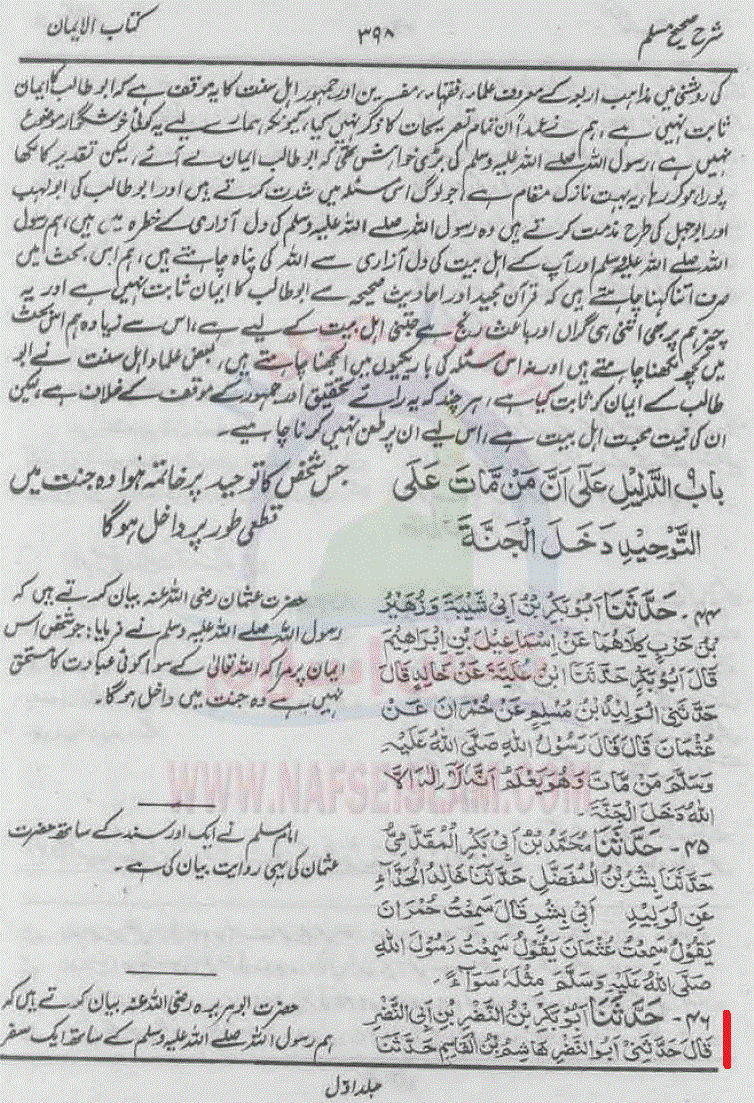 شرح صحیح مسلم
۳۹۸
کتاب الایمان
کی روشنی میں مذاہب اربعہ کے معروف علماء، فقہاء، مفسرین اور جمہور اہل سنت کا یہ موقف ہے کہ ابو طالب کا ایمان
ثابت نہیں ہے، ہم نے عمداً ان تمام تصریحات کا ذکر نہیں کیا، کیونکہ ہمارے لیے یہ کوئی خوشگوار موضوع
نہیں ہے، رسول اللہ صلے اللہ علیہ وسلم کی بڑی خواہش تھی کہ ابو طالب ایمان لے آتے، لیکن تقدیر کا لکھا
پورا ہو کر رہا، یہ بہت نازک مقام ہے، جو لوگ اس مسئلہ میں شدت کرتے ہیں اور ابو طالب کی ابو لہب
اور ابو جہل کی طرح مذمت کرتے ہیں وہ رسول اللہ صلے اللہ علیہ وسلم کی دل آزاری کے خطرہ میں ہیں، ہم رسول
اللہ صلے اللہ علیہ وسلم اور آپ کے اہل بیت کی دل آزاری سے اللہ کی پناہ چاہتے ہیں، ہم اس بحث میں
صرف اتنا کہنا چاہتے ہیں کہ قرآن مجید اور احادیث صحیحہ سے ابو طالب کا ایمان ثابت نہیں ہے اور یہ
چیز ہم پر بھی اتنی ہی گراں اور باعث رنج ہے جتنی اہل بیت کے لیے ہے، اس سے زیادہ ہم اس بحث
میں کچھ لکھنا چاہتے ہیں اور نہ اس مسئلہ کی باریکیوں میں الجھنا چاہتے ہیں، بعض علماء اہل سنت نے ابو
طالب کے ایمان کو ثابت کیا ہے، ہر چند کہ یہ رائے تحقیق اور جمہور کے موقف کے خلاف ہے، لیکن
ان کی نیت محبت اہل بیت ہے، اس لیے ان پر طعن نہیں کرنا چاہیے۔
بَابُ الدَّلِيْلِ عَلٰى اَنَّ مَنْ مَّاتَ عَلَى
التَّوْحِيْدِ دَخَلَ الْجَنَّةَ
جس شخص کا توحید پر خاتمہ ہوا وہ جنت میں
قطعی طور پر داخل ہوگا
۴۴ - حَدَّثَنَا اَبُوْ بَكْرِ بْنُ اَبِيْ شَيْبَةَ وَزُهَيْرُ
بْنُ حَرْبٍ كِلَاهُمَا عَنْ اِسْمَاعِيْلَ بْنِ اِبْرَاهِيْمَ
قَالَ اَبُوْ بَكْرٍ حَدَّثَنَا ابْنُ عُلَيَّةَ عَنْ خَالِدٍ قَالَ
حَدَّثَنِي الْوَلِيْدُ بْنُ مُسْلِمٍ عَنْ حُمْرَانَ عَنْ
عُثْمَانَ قَالَ قَالَ رَسُوْلُ اللهِ صَلَّى اللهُ عَلَيْهِ
وَسَلَّمَ مَنْ مَاتَ وَهُوَ يَعْلَمُ اَنَّهُ لَا اِلٰهَ اِلَّا
اللهُ دَخَلَ الْجَنَّةَ۔
حضرت عثمان رضی اللہ عنہ بیان کرتے ہیں کہ
رسول اللہ صلے اللہ علیہ وسلم نے فرمایا: جو شخص اس
ایمان پر مرا کہ اللہ تعالٰی کے سوا کوئی عبادت کا مستحق
نہیں ہے وہ جنت میں داخل ہوگا۔
۴۵ - حَدَّثَنَا مُحَمَّدُ بْنُ اَبِيْ بَكْرٍ الْمُقَدَّمِيُّ
حَدَّثَنَا بِشْرُ بْنُ الْمُفَضَّلِ حَدَّثَنَا خَالِدُ الْحَذَّاءُ
عَنِ الْوَلِيْدِ اَبِيْ بِشْرٍ قَالَ سَمِعْتُ حُمْرَانَ
يَقُوْلُ سَمِعْتُ عُثْمَانَ يَقُوْلُ سَمِعْتُ رَسُوْلَ اللهِ
صَلَّى اللهُ عَلَيْهِ وَسَلَّمَ مِثْلَهُ سَوَآءً۔
امام مسلم نے ایک اور سند کے ساتھ حضرت
عثمان کی یہی روایت بیان کی ہے۔
۴۶ - حَدَّثَنَا اَبُوْ بَكْرِ بْنُ النَّضْرِ بْنِ اَبِي النَّضْرِ
قَالَ حَدَّثَنِيْ اَبُو النَّضْرِ هَاشِمُ بْنُ الْقَاسِمِ حَدَّثَنَا
حضرت ابوہریرہ رضی اللہ عنہ بیان کرتے ہیں کہ
ہم رسول اللہ صلے اللہ علیہ وسلم کے ساتھ ایک سفر
جلد اول
WWW.NAFSEISLAM.COM